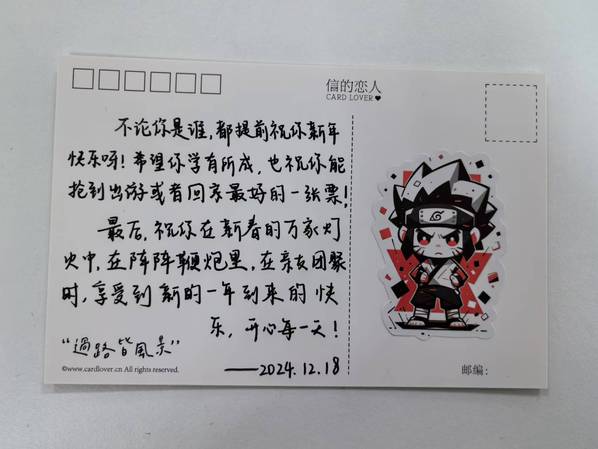 信的恋人
CARD LOVER♥
不论你是谁,都提前祝你新年
快乐呀!希望你学有所成,也祝你能
抢到出游或者回家最好的一张票!
最后,祝你在新春的万家灯
火中,在阵阵鞭炮里,在亲友团聚
时,享受到新的一年到来的快
乐,开心每一天!
“過路皆風景”
——2024.12.18
©www.cardlover.cn All rights reserved.
邮编: